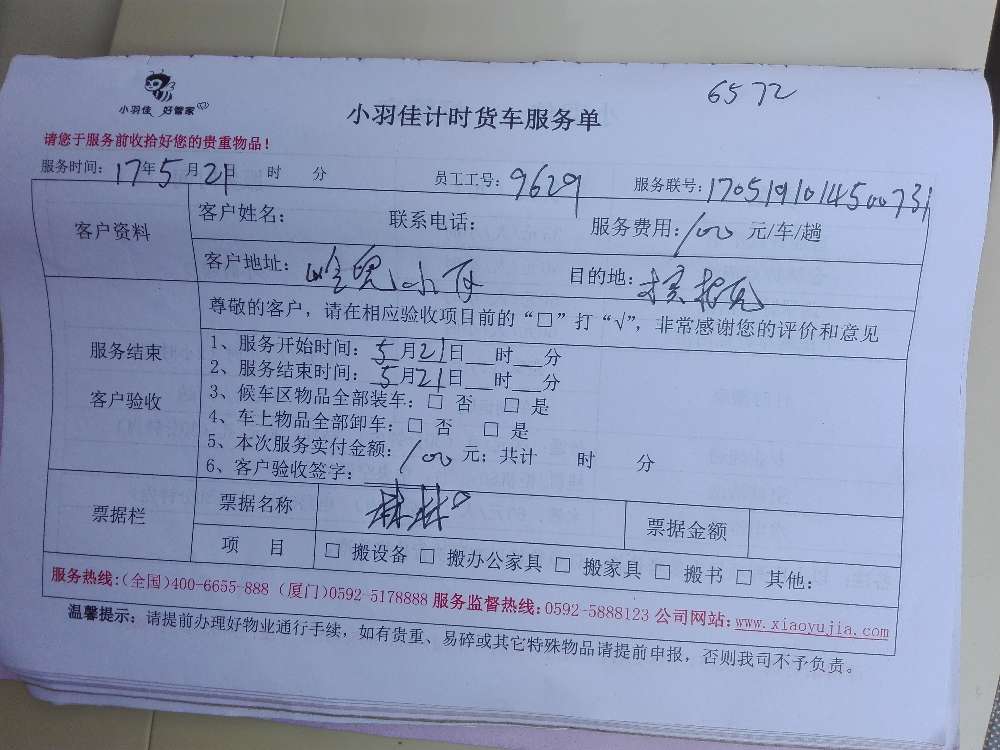 6572
小羽佳 好管家
小羽佳计时货车服务单
请您于服务前收拾好您的贵重物品！
服务时间：17年5月21日 时 分 员工工号：9629 服务联号：1705191014500731
客户资料
客户姓名： 联系电话： 服务费用：100 元/车/趟
客户地址： 目的地：
尊敬的客户，请在相应验收项目前的“□”打“√”，非常感谢您的评价和意见
服务结束
客户验收
1、服务开始时间：5月21日__时___分
2、服务结束时间：5月21日___时___分
3、候车区物品全部装车：□ 否 □ 是
4、车上物品全部卸车：□ 否 □ 是
5、本次服务实付金额：100 元；共计 时 分
6、客户验收签字：
票据栏
票据名称 票据金额
项 目 □ 搬设备 □ 搬办公家具 □ 搬家具 □ 搬书 □ 其他：
服务热线：(全国)400-6655-888 (厦门)0592-5178888 服务监督热线：0592-5888123 公司网站：www.xiaoyujia.com
温馨提示：请提前办理好物业通行手续，如有贵重、易碎或其它特殊物品请提前申报，否则我司不予负责。